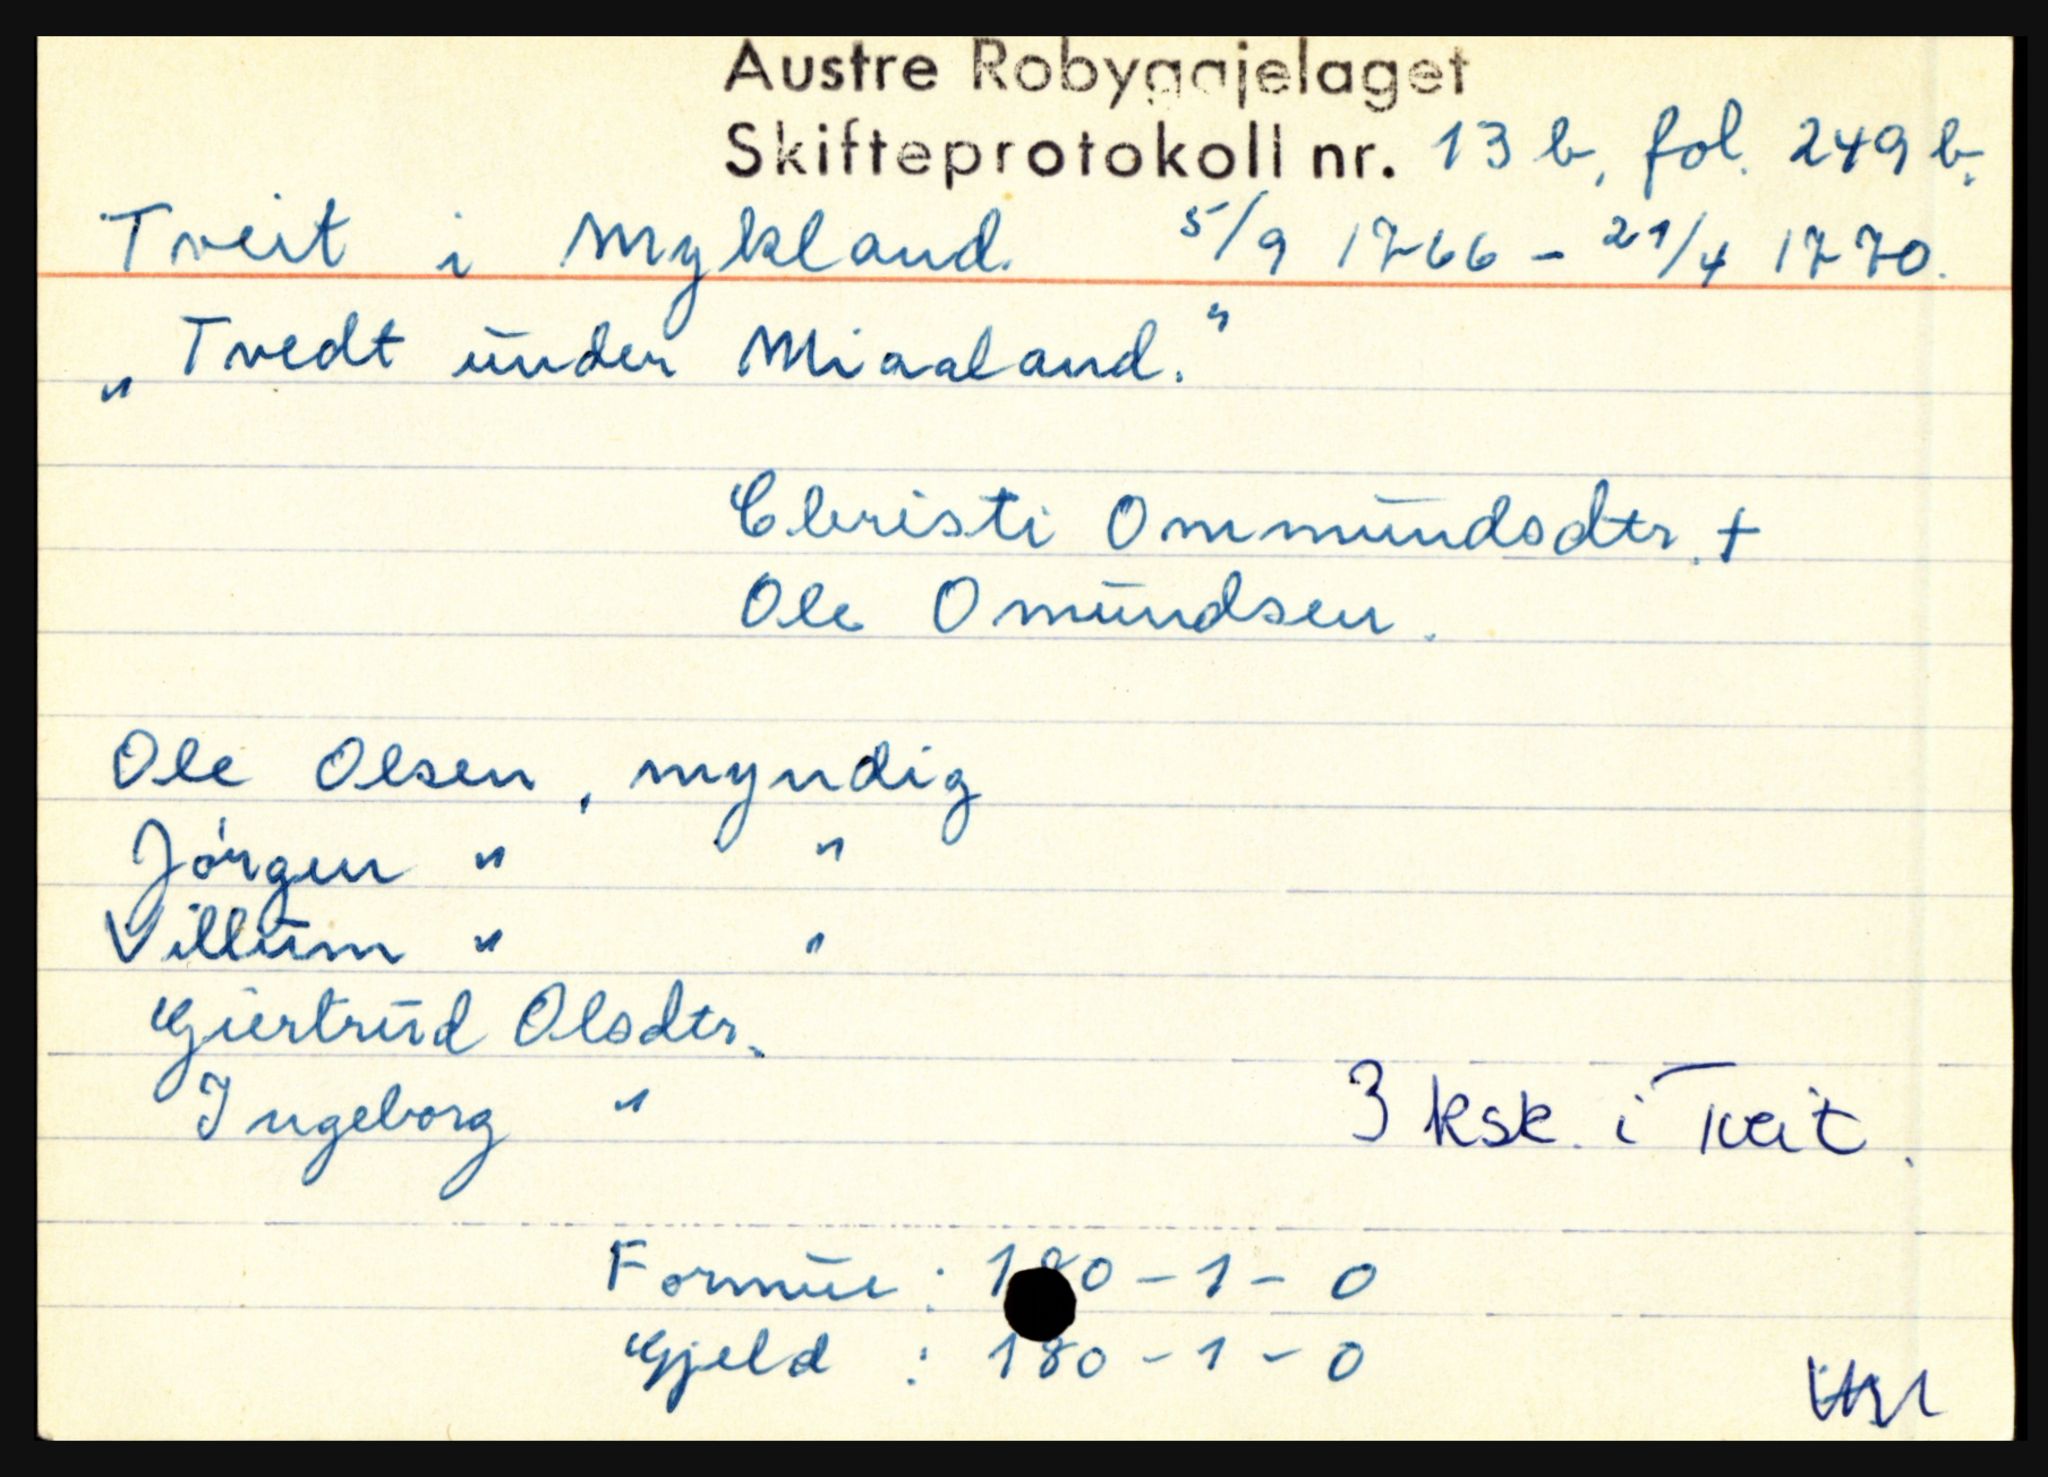 Austre Robyggjelaget
Skifteprotokoll nr. 13 b, fol. 249 b.
Tveit i Mykland. 5/9 1766 - 21/4 1770.
„Tvedt under Miaaland."
Christi Ommundsdtr. +
Ole Omundsen.
Ole Olsen, myndig
Jørgen " "
Villum " "
Giertrud Olsdtr.
Ingeborg "
3 ksk. i Tveit.
Formue: 180-1-0
Gjeld: 180-1-0